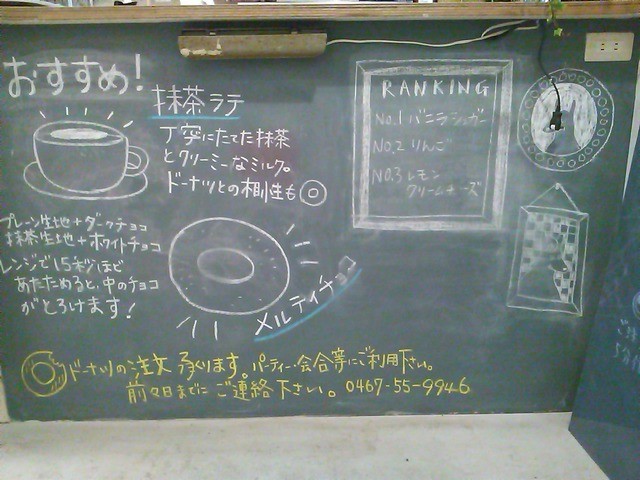 おすすめ!
抹茶ラテ
丁寧にたてた抹茶
とクリーミーなミルク。
ドーナツとの相性も◎
RANKING
No.1 バニラシュガー
No.2 りんご
No.3 レモン
クリームチーズ
プレーン生地+ダークチョコ
抹茶生地+ホワイトチョコ
レンジで15秒ほど
あたためると、中のチョコ
がとろけます!
メルティチョコ
ドーナツの注文承ります。パーティー・会合等にご利用下さい。
前々日までにご連絡下さい。0467-55-9946